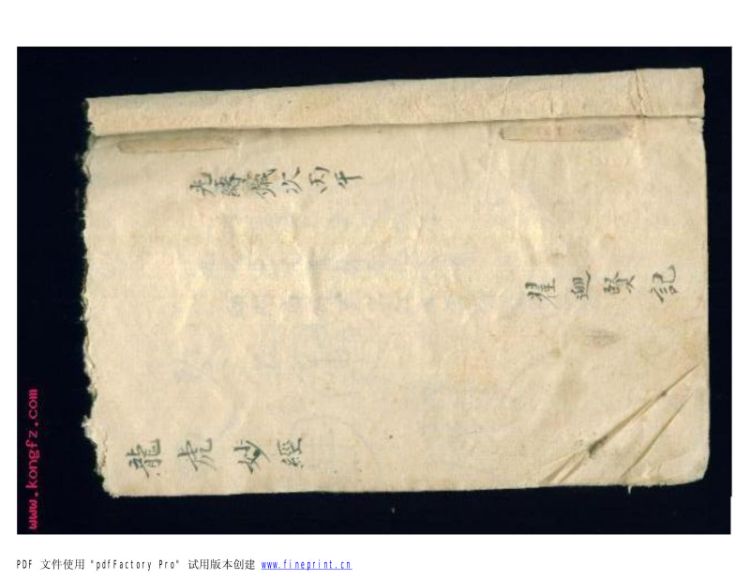 光緒歲次丙午
瞿迎賢記
龍虎妙經
www.kongfz.com
PDF 文件使用 "pdfFactory Pro" 试用版本创建 www.fineprint.cn